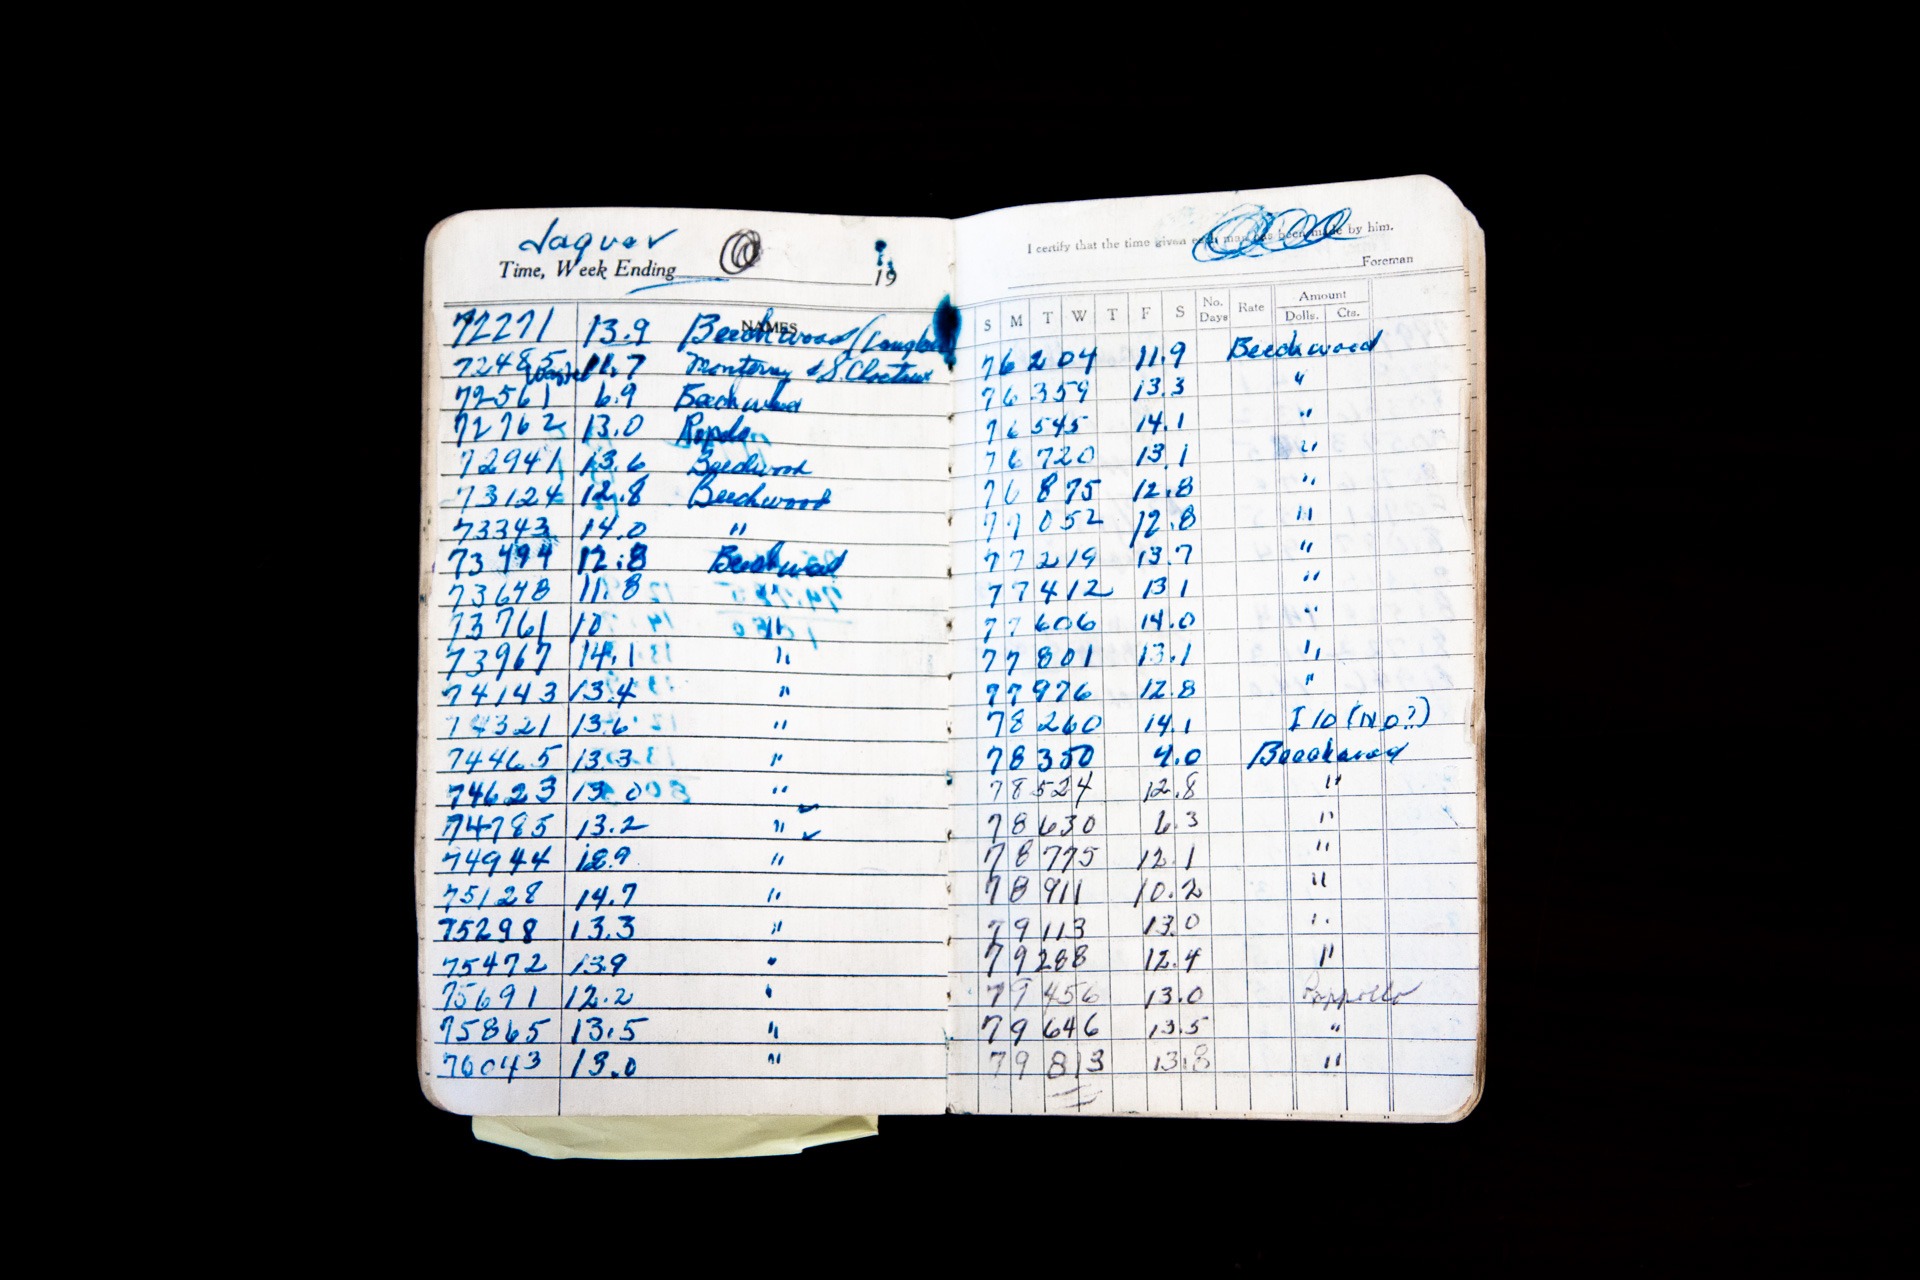 Jaguar
Time, Week Ending 19
NAMES
72271 13.9 Beechwood
72485 11.7 Monterry & S. Choctaw
72561 6.9 Beechwood
72762 13.0
72941 13.6 Beechwood
73124 12.8 Beechwood
73343 14.0 "
73494 12.8 Beechwood
73648 11.8
73761 10 "
73967 14.1 "
74143 13.4 "
74321 13.6 "
74465 13.3 "
74623 13.0 "
74785 13.2 "
74944 12.9 "
75128 14.7 "
75298 13.3 "
75472 13.9 "
75691 12.2 "
75865 13.5 "
76043 13.0 "
I certify that the time given each man has been made by him.
Foreman
S M T W T F S No. Days Rate Amount Dolls. Cts.
76204 11.9 Beechwood
76359 13.3 "
76545 14.1 "
76720 13.1 "
76875 12.8 "
77052 12.8 "
77219 13.7 "
77412 13.1 "
77606 14.0 "
77801 13.1 "
77976 12.8 "
78260 14.1 I 10 (No?)
78350 4.0 Beechwood
78524 12.8 "
78630 6.3 "
78775 12.1 "
78911 10.2 "
79113 13.0 "
79288 12.4 "
79456 13.0
79646 13.5 "
79813 13.8 "